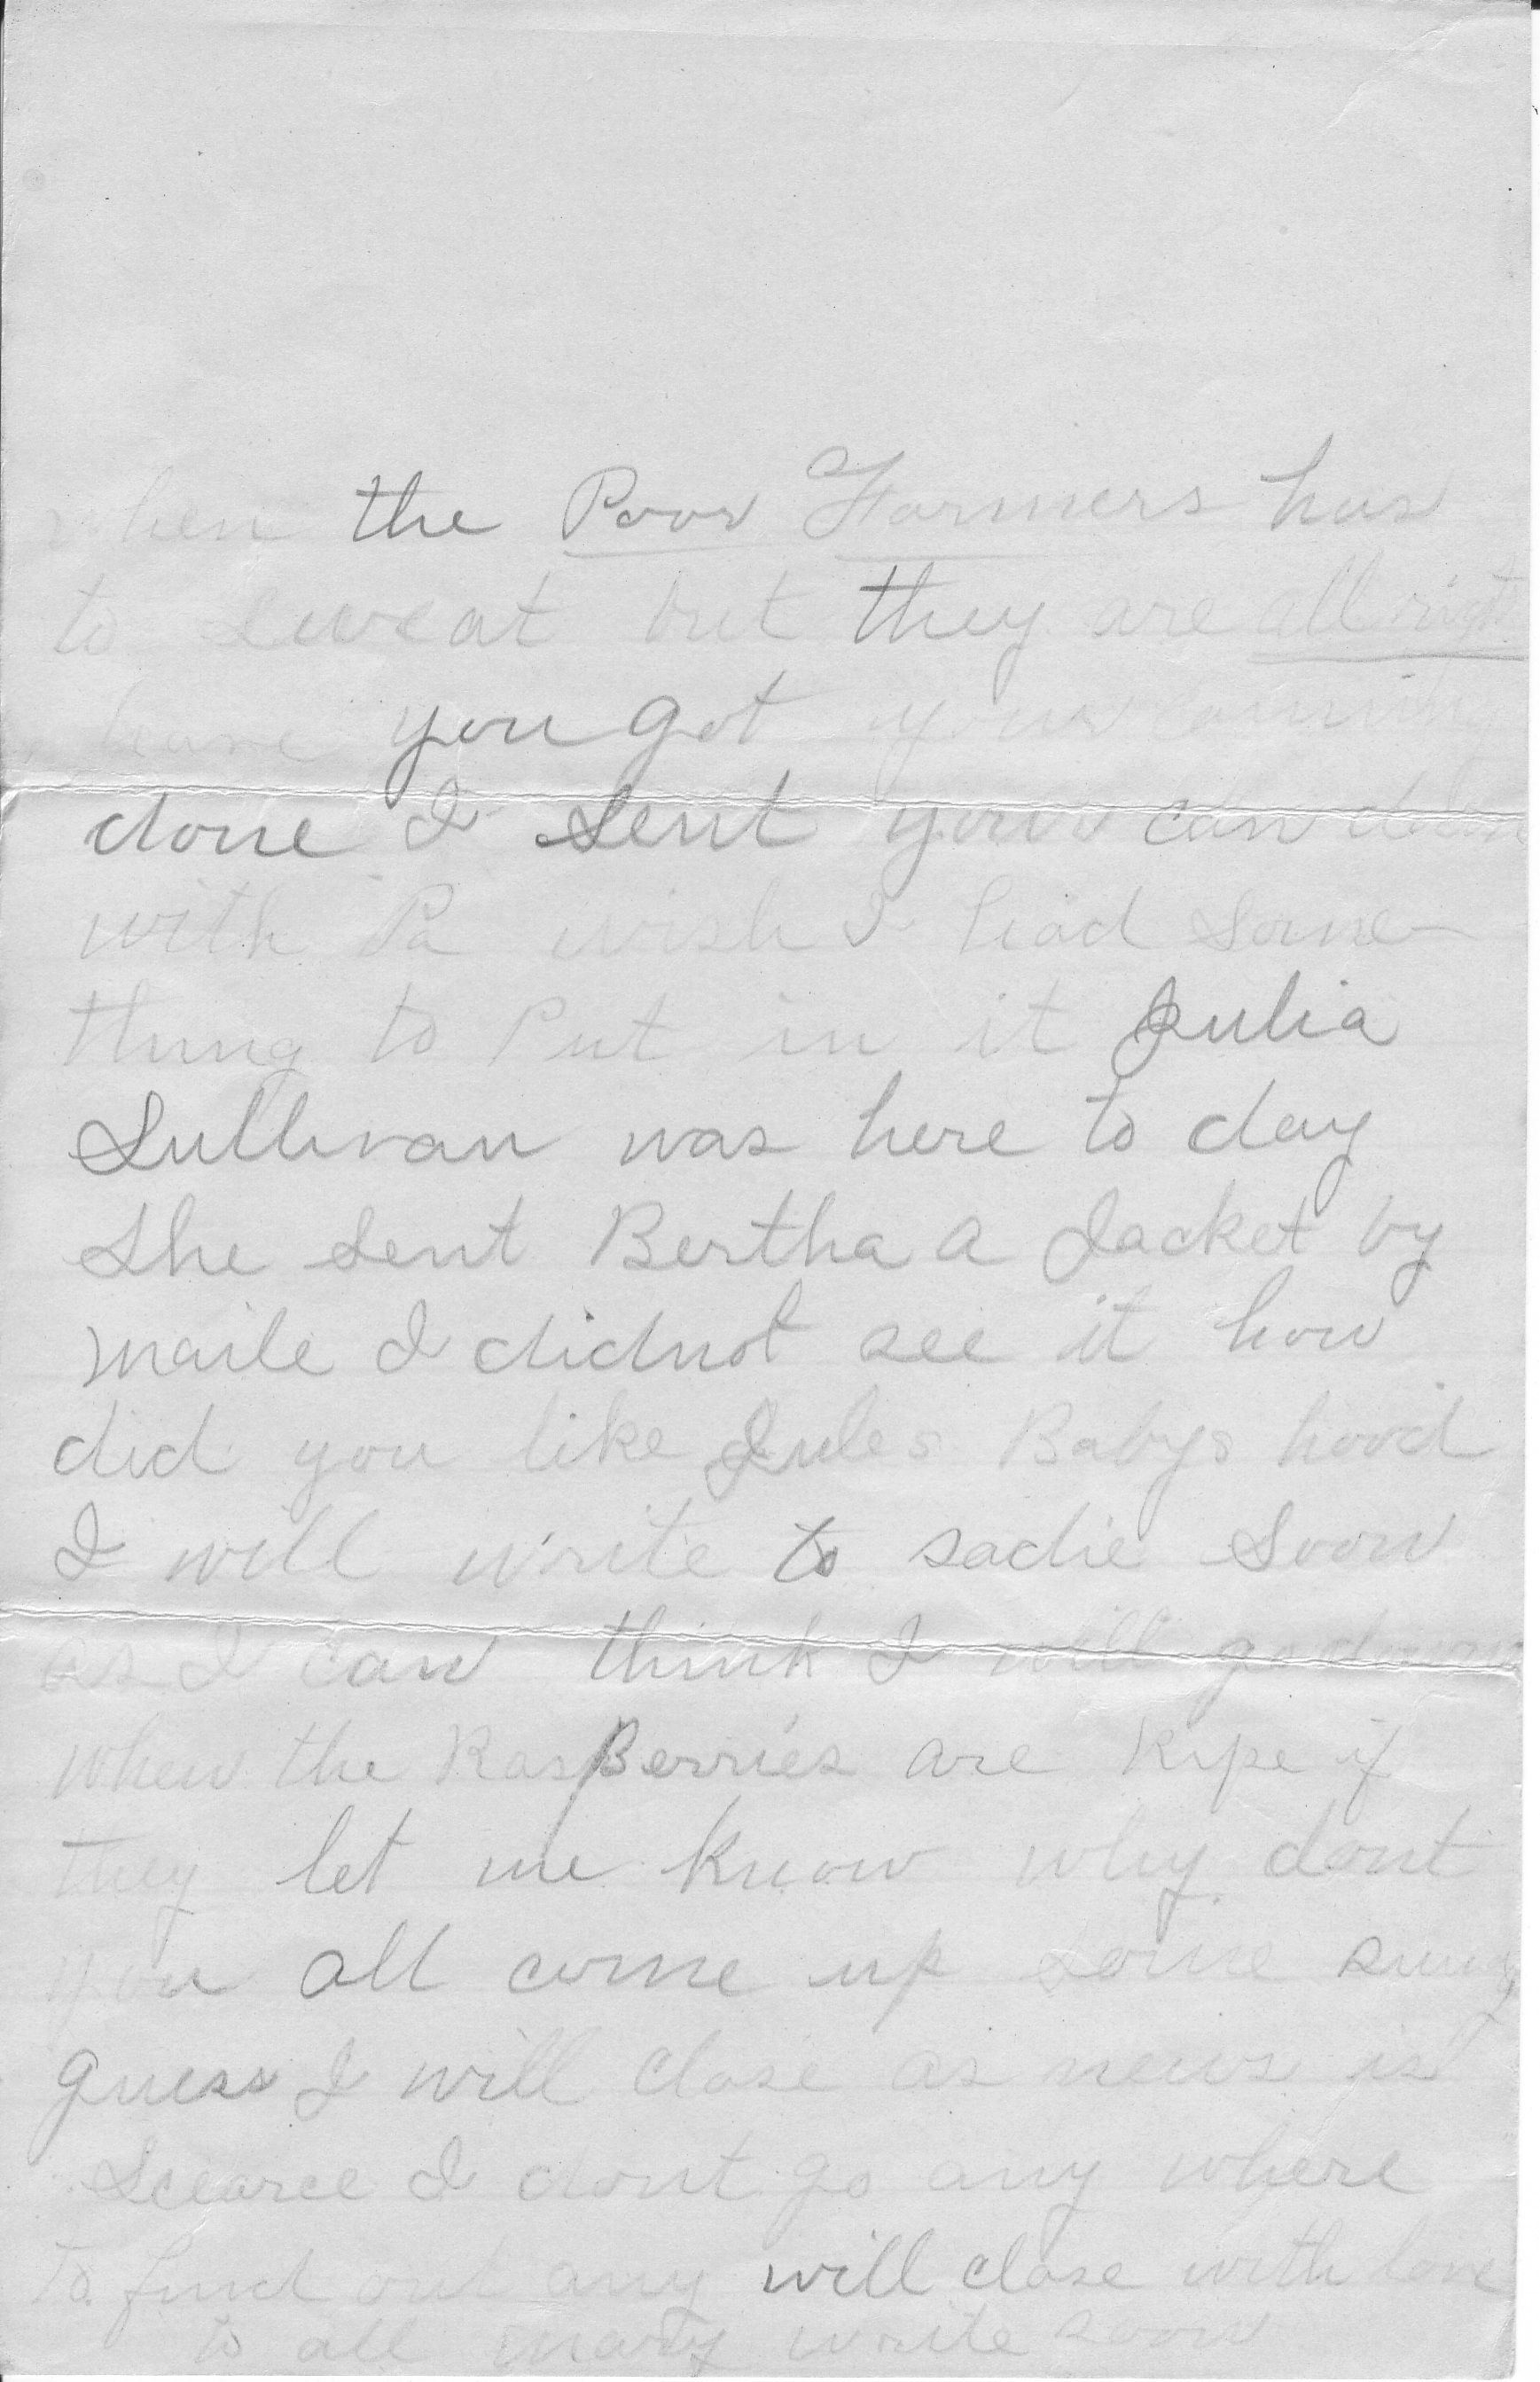 when the Poor Farmers has
to sweat but they are all right
have you got your canning
done I sent your can down
with Pa wish I had some-
thing to Put in it Julia
Sullivan was here to day
She sent Bertha a Jacket by
maile I didnot see it how
did you like Jules Babys hood
I will write to sadie Soon
as I can think I will go down
when the RaspBerries are Ripe if
they let me know why dont
you all come up some
guess I will close as news is
Scearce I dont go any where
to find out any will close with love
to all Mary write soon